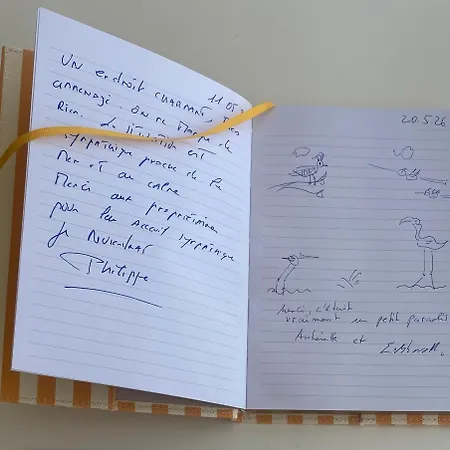 11.05.
UN endroit CHARMANT, bien
aménagé. On ne manque de
Rien. La situation est
sympathique proche de la
Mer et au calme
Merci aux propriétaires
pour leur accueil sympathique
Je Reviendrai
Philippe
20.5.26
Merci, c'était
vraiment un petit paradis
et